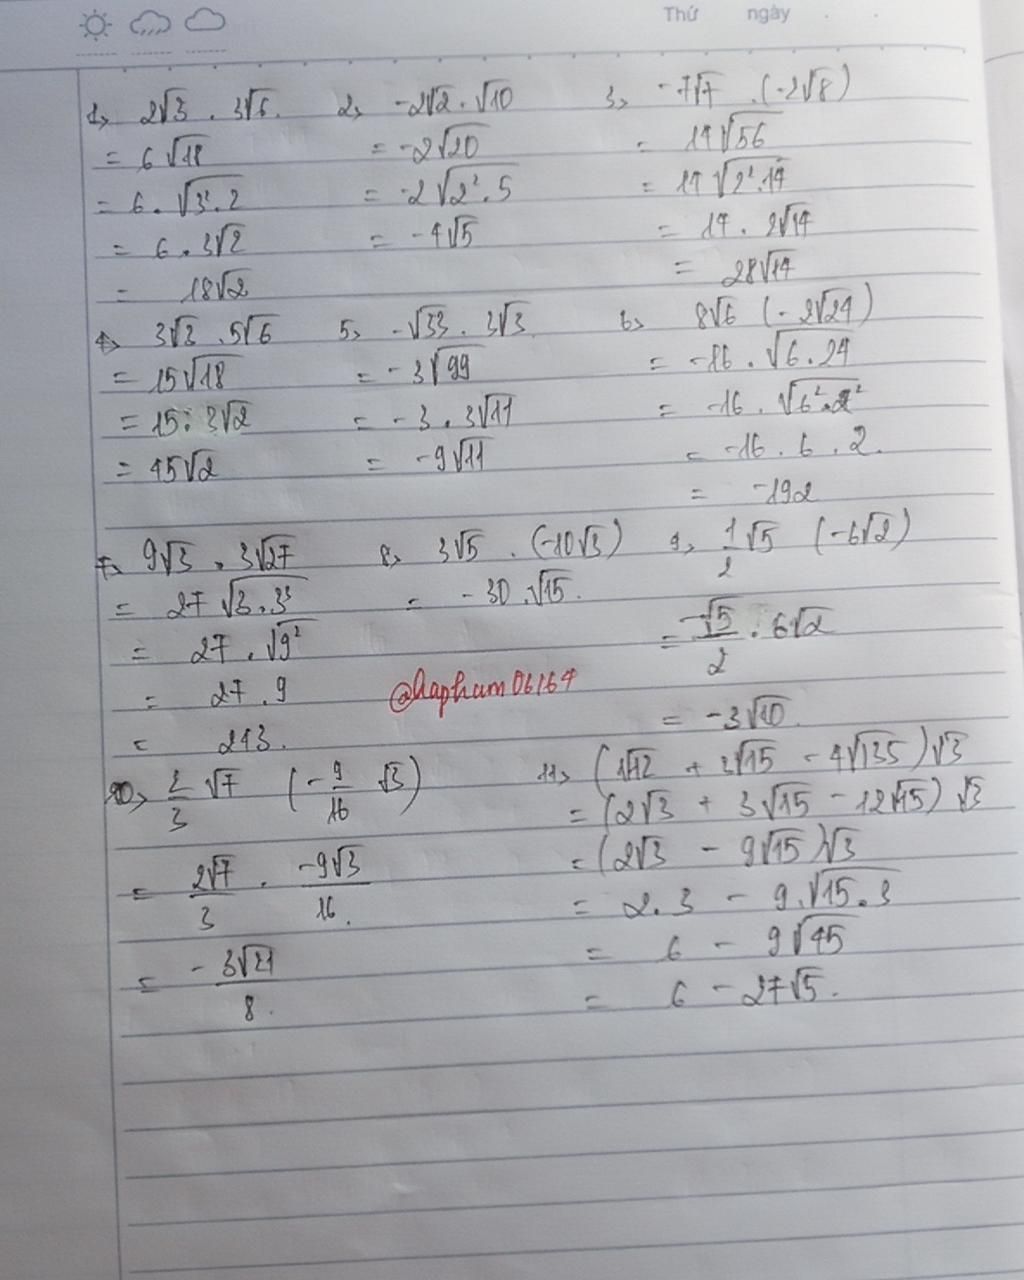 Thứ ngày
1, 2√3 . 3√6.
= 6√18
= 6 . √3².2
= 6 . 3√2
= 18√2
2, -2√2 . √10
= -2√20
= -2√2².5
= -4√5
3, -7√7 . (-2√8)
= 14√56
= 14√2².14
= 14 . 2√14
= 28√14
4, 3√3 . 5√6
= 15√18
= 15 . 3√2
= 45√2
5, -√33 . 3√3
= -3√99
= -3 . 3√11
= -9√11
6, 8√6 (-2√24)
= -16 . √6.24
= -16 . √6².2²
= -16 . 6 . 2.
= -192
7, 9√3 . 3√27
= 27√3.3³
= 27 . √9²
= 27 . 9
= 243.
8, 3√5 . (-10√3)
= -30.√15.
9, 1/2 √5 (-6√2)
= -√5/2 . 6√2
= -3√10.
@hapham06164
10, 2/3 √7 (-9/16 √3)
= 2√7/3 . -9√3/16.
= -3√21/8.
11, (√12 + 3√15 - 4√135)√3
= (2√3 + 3√15 - 12√15) √3
= (2√3 - 9√15)√3
= 2.3 - 9.√15.3
= 6 - 9√45
= 6 - 27√5.